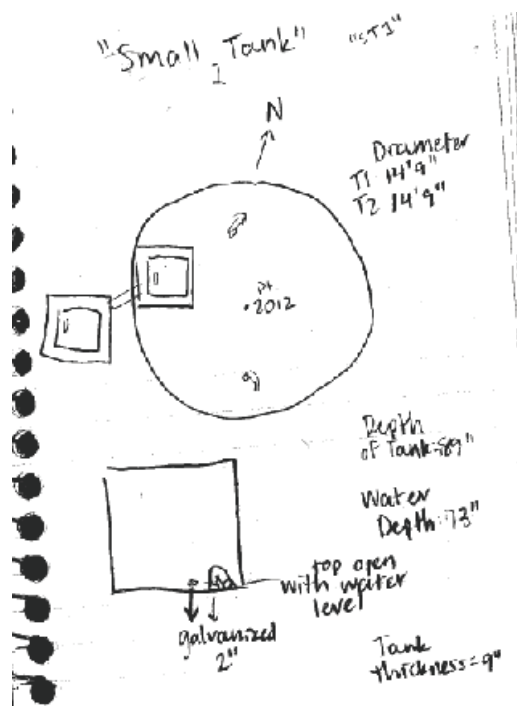 "Small Tank" "ST1"
1
N
Diameter
T1 14'9"
T2 14'9"
pt
.2012
Depth
of Tank=89"
Water
Depth=73"
top open
with water
level
galvanized
2"
Tank
thickness=9"